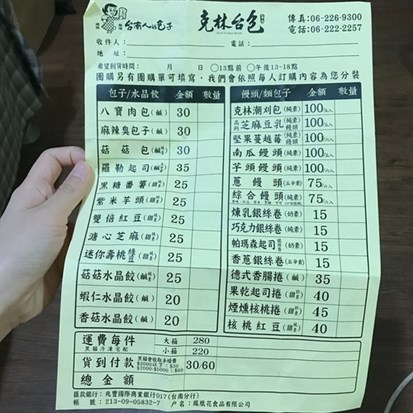 台南人ㄟ包子
克林台包
傳真:06-226-9300
電話:06-222-2257
收件人:
電話:
地址:
希望到貨時間: 月 日 □13點前 □午後13-18點
團購另有團購單可填寫,我們會依照每人訂購內容為您分裝
包子/水晶餃 金額 數量
八寶肉包(鹹) 30
麻辣臭包子(鹹) 30
菇菇包 30
羅勒起司 35
黑糖番薯 25
紫米芋頭 25
雙倍紅豆 25
溏心芝麻 25
迷你壽桃 25
菇菇水晶餃 25
蝦仁水晶餃 20
香菇水晶餃 20
饅頭/麵包子 金額 數量
克林潮刈包(純素) 100
芝麻豆乳 100
堅果蔓越莓 100
南瓜饅頭(純素) 100
芋頭饅頭(純素) 100
蔥饅頭 75
綜合饅頭 75
煉乳銀絲卷 15
巧克力銀絲卷 15
帕瑪森起司 15
香蔥銀絲卷 15
德式香腸捲 35
果乾起司捲 40
煙燻核桃捲 45
核桃紅豆 40
運費每件 大箱 280
小箱 220
貨到付款 30/60
總金額
匯款銀行:兆豐國際商業銀行017(台南分行)
帳號:213-09-05832-7 戶名:鳳凰花食品有限公司